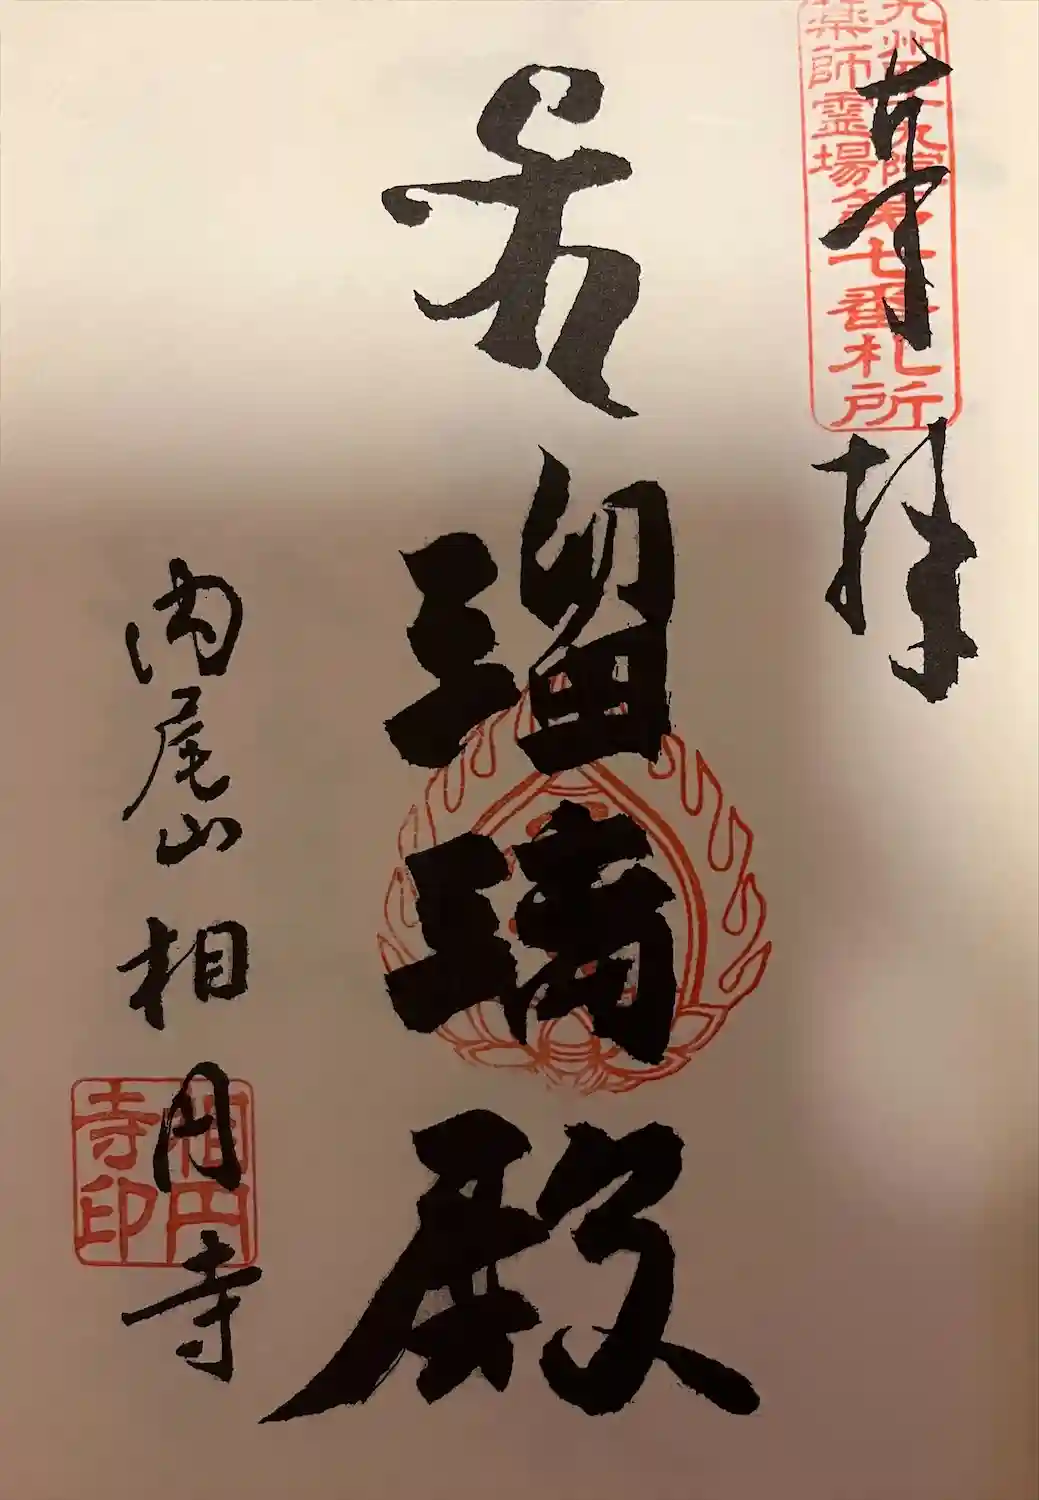 九州四十九院
薬師霊場
第七番札所
奉拝
瑠璃殿
内尾山
相円寺
相円
寺印